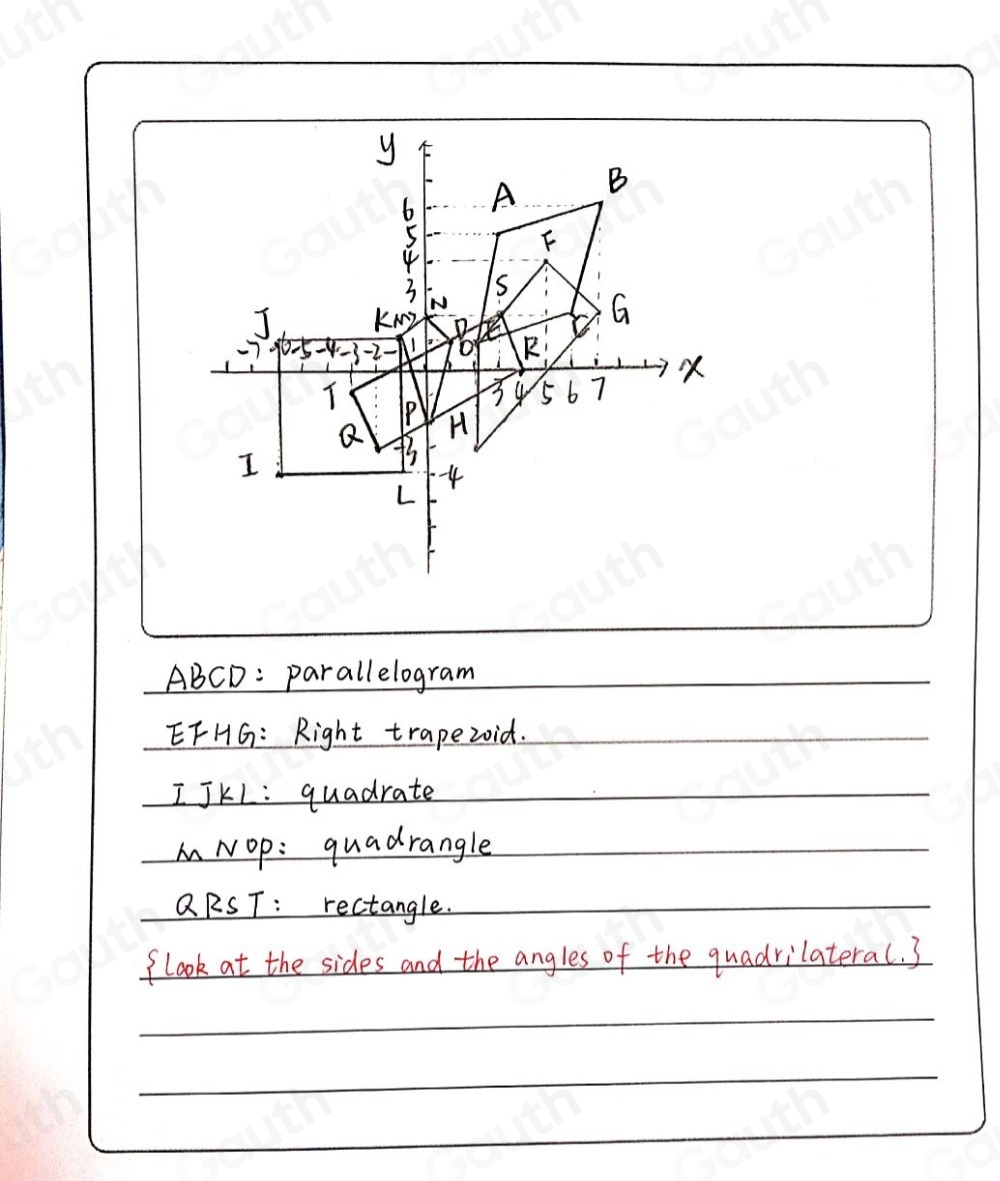 y
B
A
6
5
F
4
S
3
N
J
K M 2
D
E
C
G
-7 -6 -5 -4 -3 -2 -1
1
O
R
x
T
3 4 5 6 7
P
H
Q
-3
I
-4
L
ABCD: parallelogram
EFHG: Right trapezoid.
IJKL: quadrate
MNOP: quadrangle
QRST: rectangle.
{Look at the sides and the angles of the quadrilateral.}
Gauth